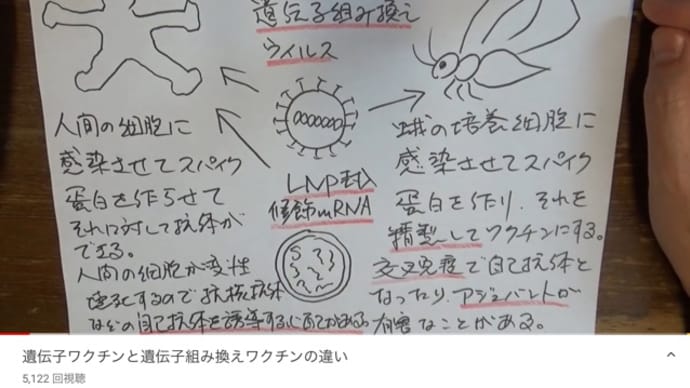 遺伝子組み換え
ウイルス
人間の細胞に
感染させてスパイク
蛋白を作らせて
それに対して抗体が
できる。
人間の細胞が変性
壊死するので抗核抗体
などの自己抗体を誘導する
LNP封入
修飾mRNA
蛾の培養細胞に
感染させてスパイク
蛋白を作り、それを
精製してワクチンにする。
交叉免疫で自己抗体と
なったり、アジュバントが
有害なことがある。
遺伝子ワクチンと遺伝子組み換えワクチンの違い
5,122 回視聴